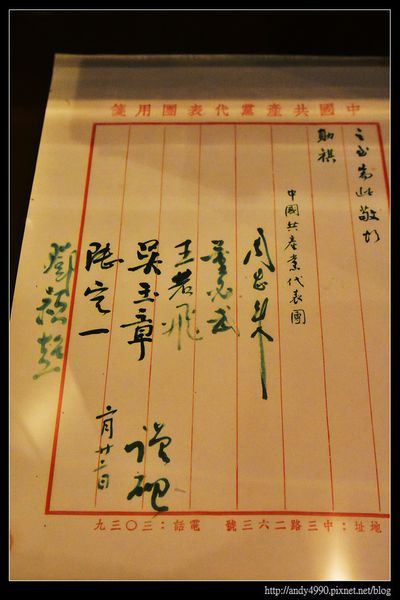 中國共產黨代表團用箋
之至耑此敬頌
勛祺
中國共產黨代表團
周恩來
董必武
王若飛
吳玉章
謹
陸定一
鄧穎超
地址:中三路二六三號 電話:三〇三九
http://andy4990.pixnet.net/blog